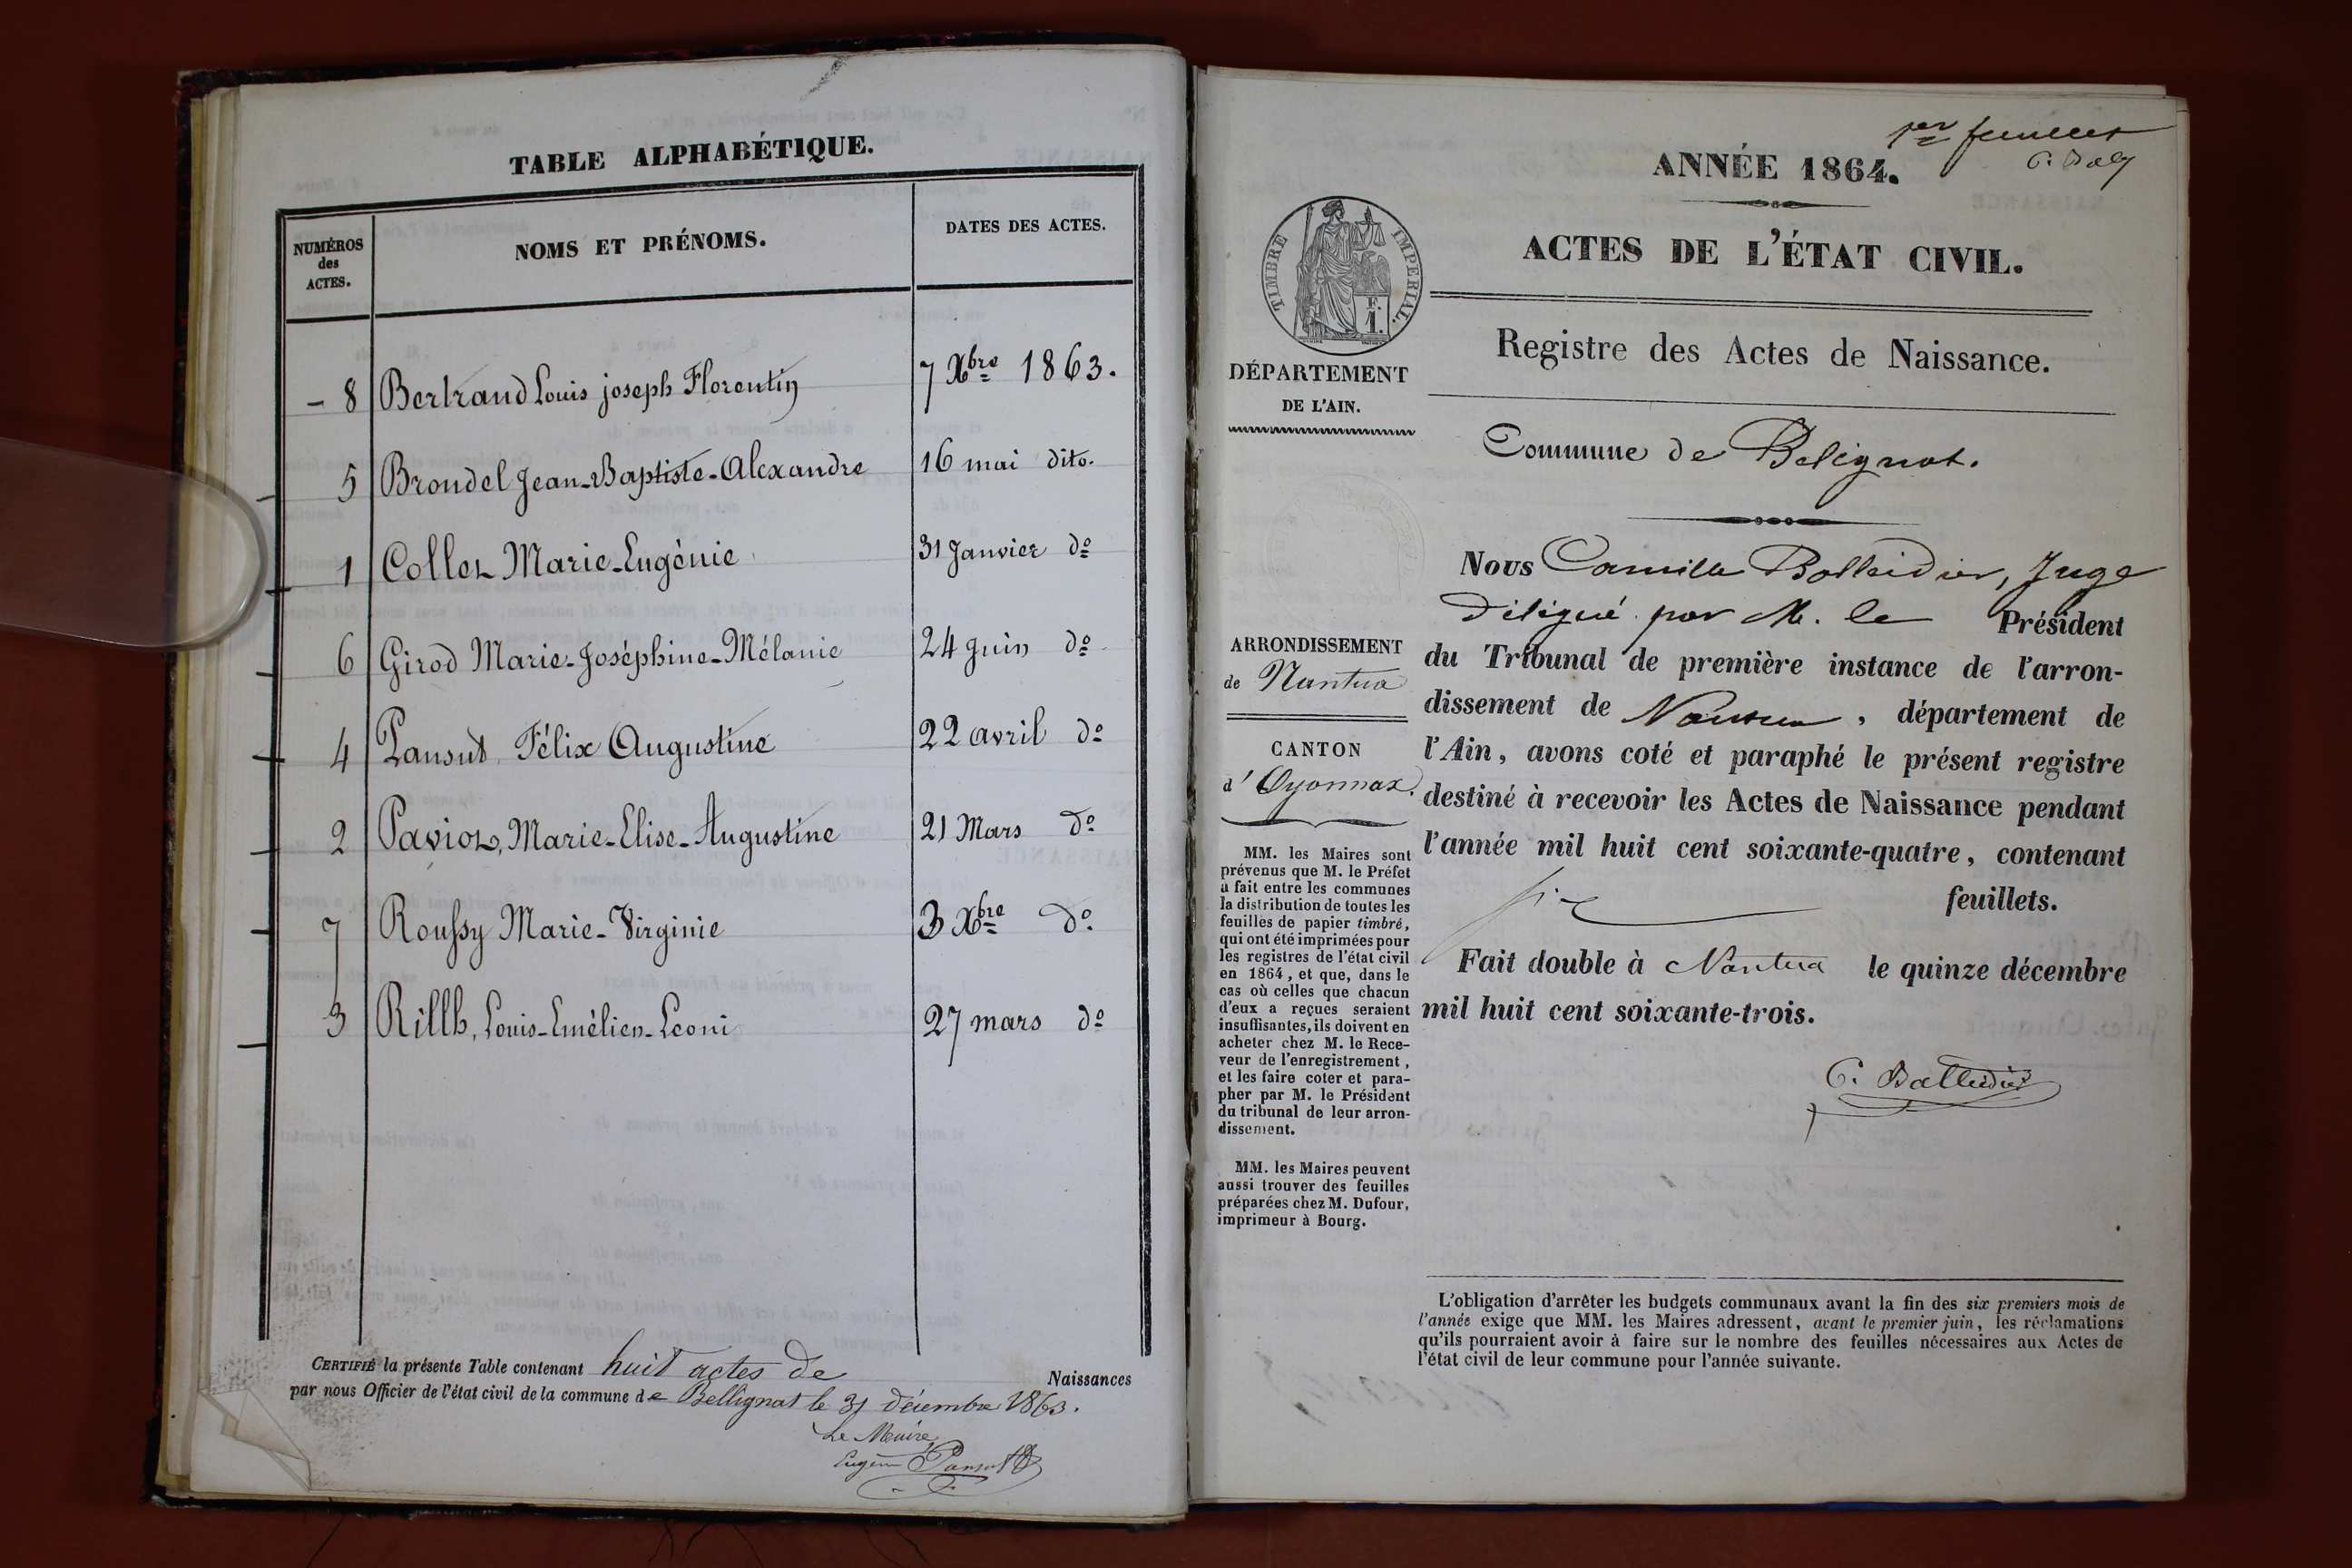 TABLE ALPHABÉTIQUE.
NUMÉROS
des
ACTES.
NOMS ET PRÉNOMS.
DATES DES ACTES.
- 8 Bertrand Louis joseph Florentin 7 Xbre 1863.
5 Brondel Jean-Baptiste-Alexandre 16 mai dito.
1 Collez Marie-Eugénie 31 Janvier do
6 Girod Marie-Joséphine-Mélanie 24 Juin do
4 Pansut Félix Augustine 22 avril do
2 Pavioz, Marie-Elise-Augustine 21 Mars do
7 Roussy Marie-Virginie 3 Xbre do
3 Rillh, Louis-Emélien-Leoni 27 mars do
CERTIFIÉ la présente Table contenant huit actes de Naissances
par nous Officier de l'état civil de la commune de Bellignat le 31 décembre 1863.
Le Maire
Eugène Pansut
1er feuillet
ANNÉE 1864.
ACTES DE L'ÉTAT CIVIL.
TIMBRE IMPERIAL.
F.
1.
Registre des Actes de Naissance.
DÉPARTEMENT
DE L'AIN.
Commune de Belignat.
ARRONDISSEMENT
de Nantua
CANTON
d'Oyonnax.
MM. les Maires sont
prévenus que M. le Préfet
a fait entre les communes
la distribution de toutes les
feuilles de papier timbré,
qui ont été imprimées pour
les registres de l'état civil
en 1864, et que, dans le
cas où celles que chacun
d'eux a reçues seraient
insuffisantes, ils doivent en
acheter chez M. le Rece-
veur de l'enregistrement,
et les faire coter et para-
pher par M. le Président
du tribunal de leur arron-
dissement.
MM. les Maires peuvent
aussi trouver des feuilles
préparées chez M. Dufour,
imprimeur à Bourg.
Nous Camille Balleidier, Juge
délégué par M. le Président
du Tribunal de première instance de l'arron-
dissement de Nantua, département de
l'Ain, avons coté et paraphé le présent registre
destiné à recevoir les Actes de Naissance pendant
l'année mil huit cent soixante-quatre, contenant
six feuillets.
Fait double à Nantua le quinze décembre
mil huit cent soixante-trois.
C. Balleidier
L'obligation d'arrêter les budgets communaux avant la fin des six premiers mois de
l'année exige que MM. les Maires adressent, avant le premier juin, les réclamations
qu'ils pourraient avoir à faire sur le nombre des feuilles nécessaires aux Actes de
l'état civil de leur commune pour l'année suivante.